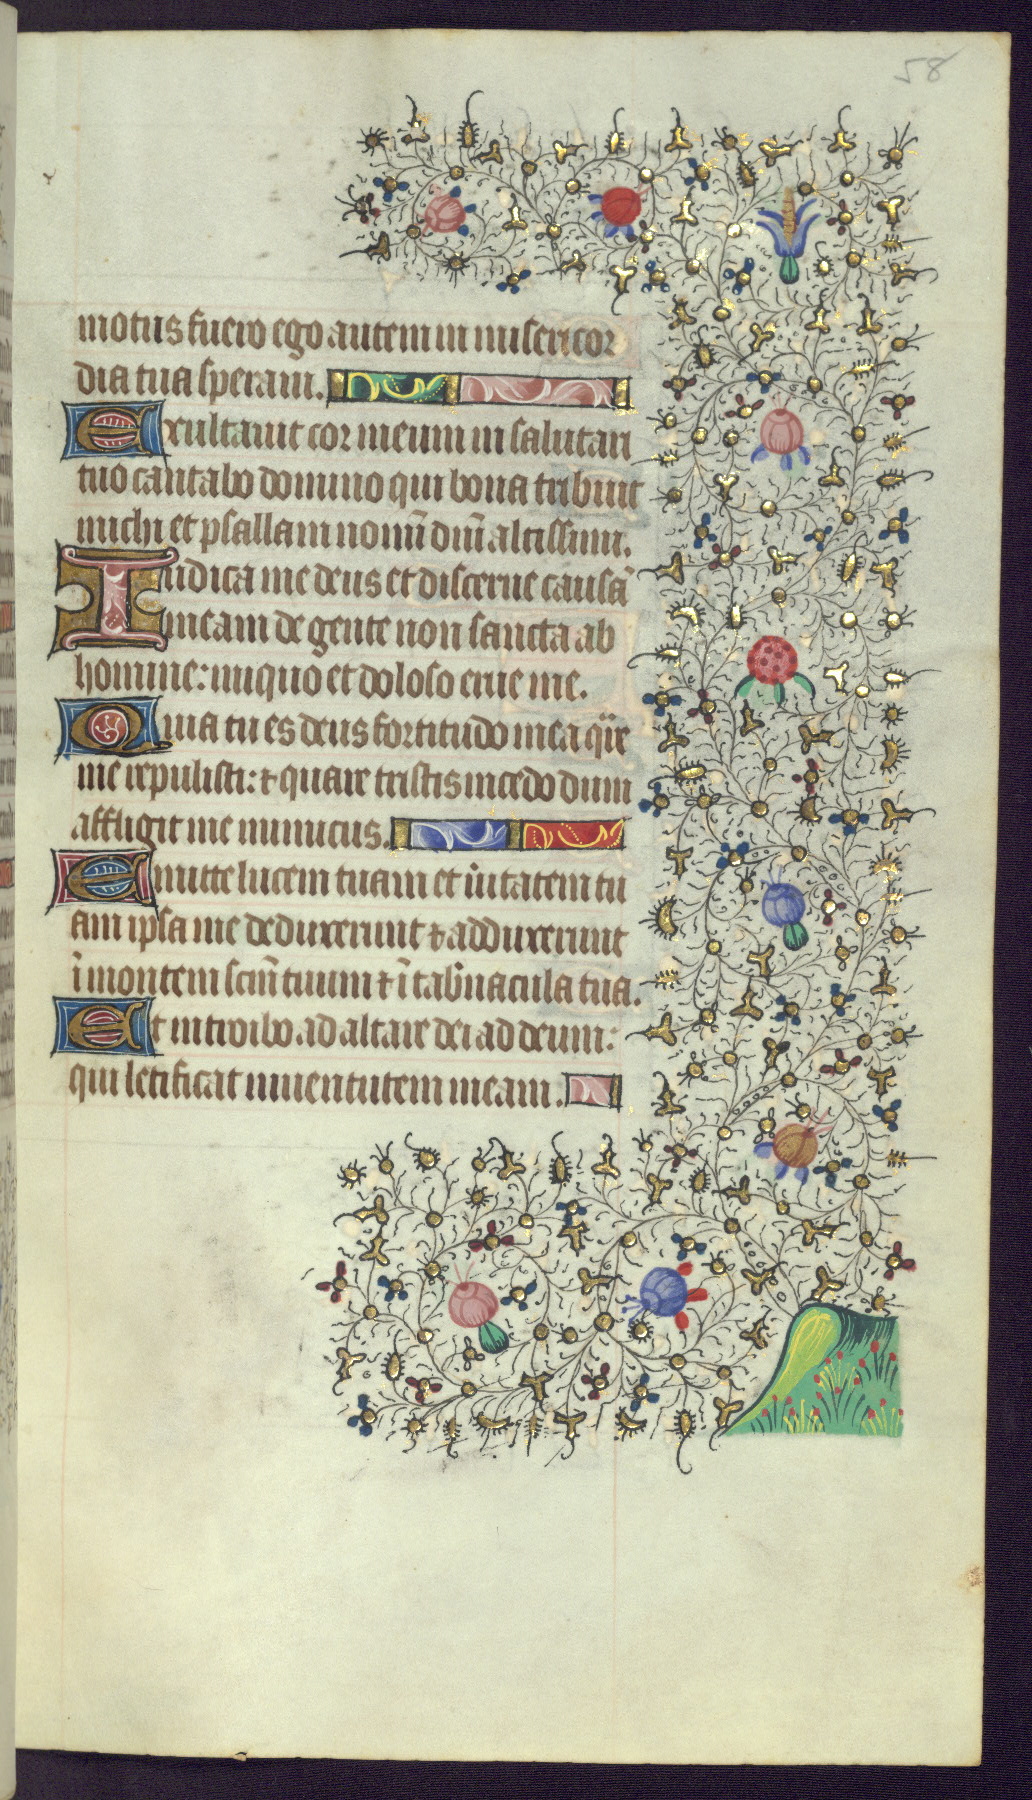 58
motus fuero ego autem in misericor
dia tua speraui.
Exultauit cor meum in salutari
tuo cantabo domino qui bona tribuit
michi et psallam nomī dnī altissimi.
Iudica me deus et discerne causā
meam de gente non sancta ab
homine: iniquo et doloso erue me.
Quia tu es deus fortitudo mea q̄re
me repulisti: ⁊ quare tristis incedo dum
affligit me inimicus.
Emitte lucem tuam et ūitatem tu
am ipsa me deduxerunt ⁊ adduxerunt
ī montem scm̄ tuum ⁊ ī tab̄nacula tua.
Et introibo ad altare dei ad deum:
qui letificat iuuentutem meam.